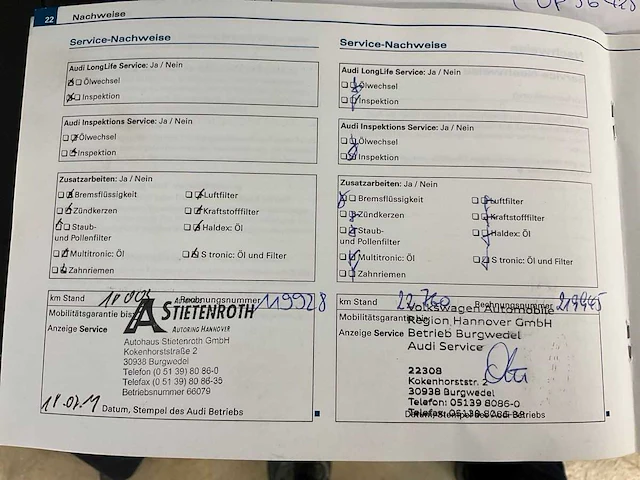 22 Nachweise
Service-Nachweise
Audi LongLife Service: Ja / Nein
Ölwechsel
Inspektion
Audi Inspektions Service: Ja / Nein
Ölwechsel
Inspektion
Zusatzarbeiten: Ja / Nein
Bremsflüssigkeit
Luftfilter
Zündkerzen
Kraftstofffilter
Staub-
und Pollenfilter
Haldex: Öl
Multitronic: Öl
S tronic: Öl und Filter
Zahnriemen
km Stand
Rechnungsnummer 119928
Mobilitätsgarantie bis
Anzeige Service
Autohaus
STIETENROTH
AUTORING HANNOVER
Autohaus Stietenroth GmbH
Kokenhorststraße 2
30938 Burgwedel
Telefon (0 51 39) 80 86-0
Telefax (0 51 39) 80 86-35
Betriebsnummer 66079
Datum, Stempel des Audi Betriebs
Service-Nachweise
Audi LongLife Service: Ja / Nein
Ölwechsel
Inspektion
Audi Inspektions Service: Ja / Nein
Ölwechsel
Inspektion
Zusatzarbeiten: Ja / Nein
Bremsflüssigkeit
Luftfilter
Zündkerzen
Kraftstofffilter
Staub-
und Pollenfilter
Haldex: Öl
Multitronic: Öl
S tronic: Öl und Filter
Zahnriemen
km Stand 22.760
Rechnungsnummer
Mobilitätsgarantie bis
Anzeige Service
Volkswagen Automobile
Region Hannover GmbH
Betrieb Burgwedel
Audi Service
22308
Kokenhorststr. 2
30938 Burgwedel
Telefon: 05139 8086-0
Datum, Stempel des Audi Betriebs